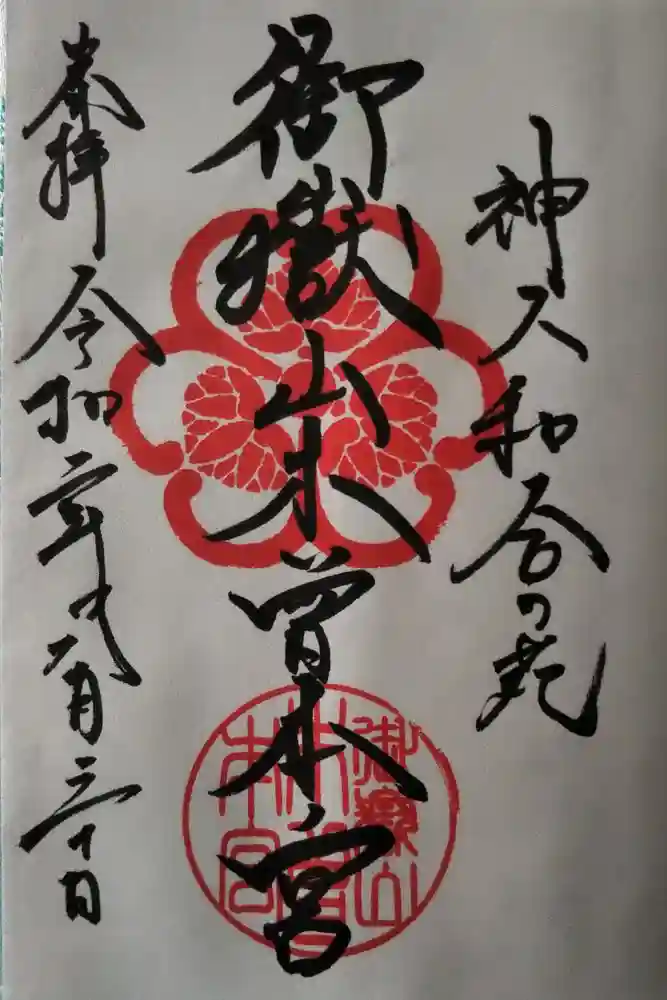 神人和合の苑
御嶽山木曽本宮
奉拝 令和 年 月三十日
御嶽山
木曽
本宮